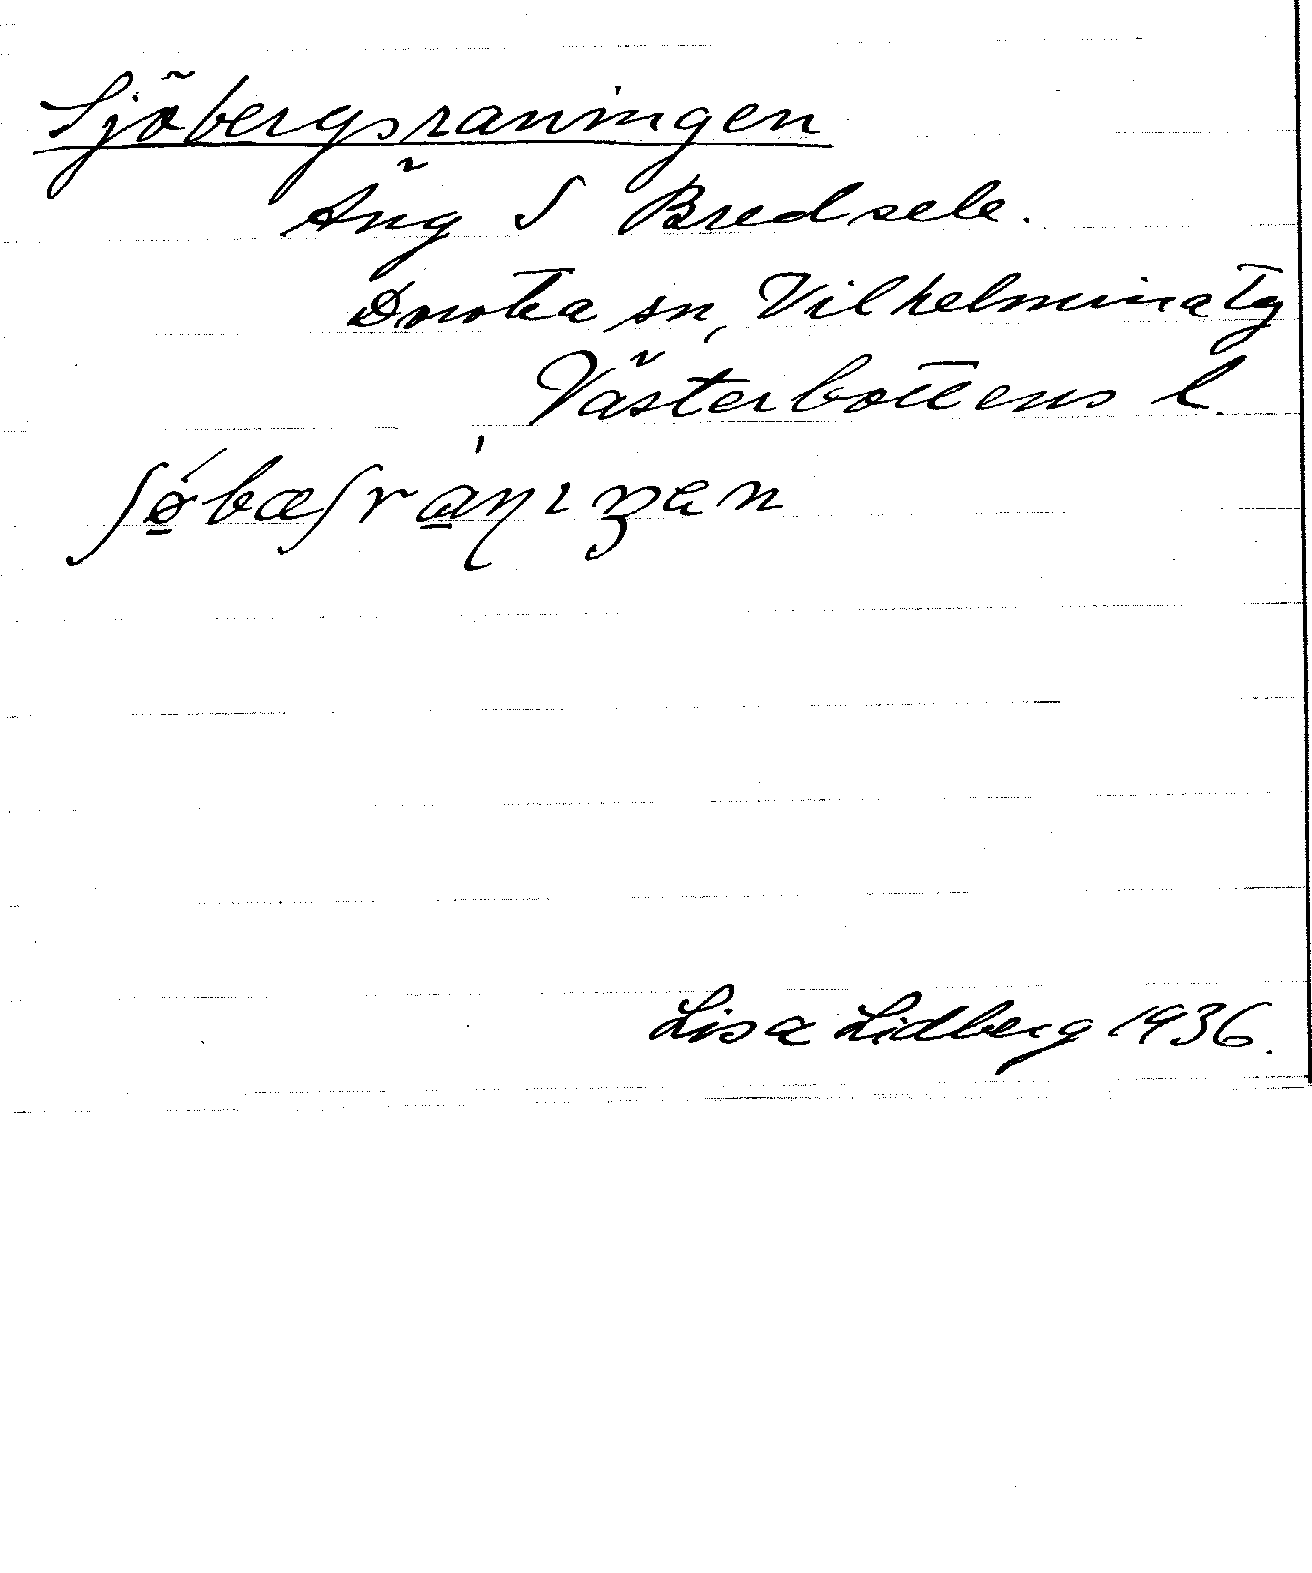 Sjöbergsraningen
Äng S Bredsele.
Dorotea sn, Vilhelmina tg
Västerbottens l.
Lisa Lidberg 1936.